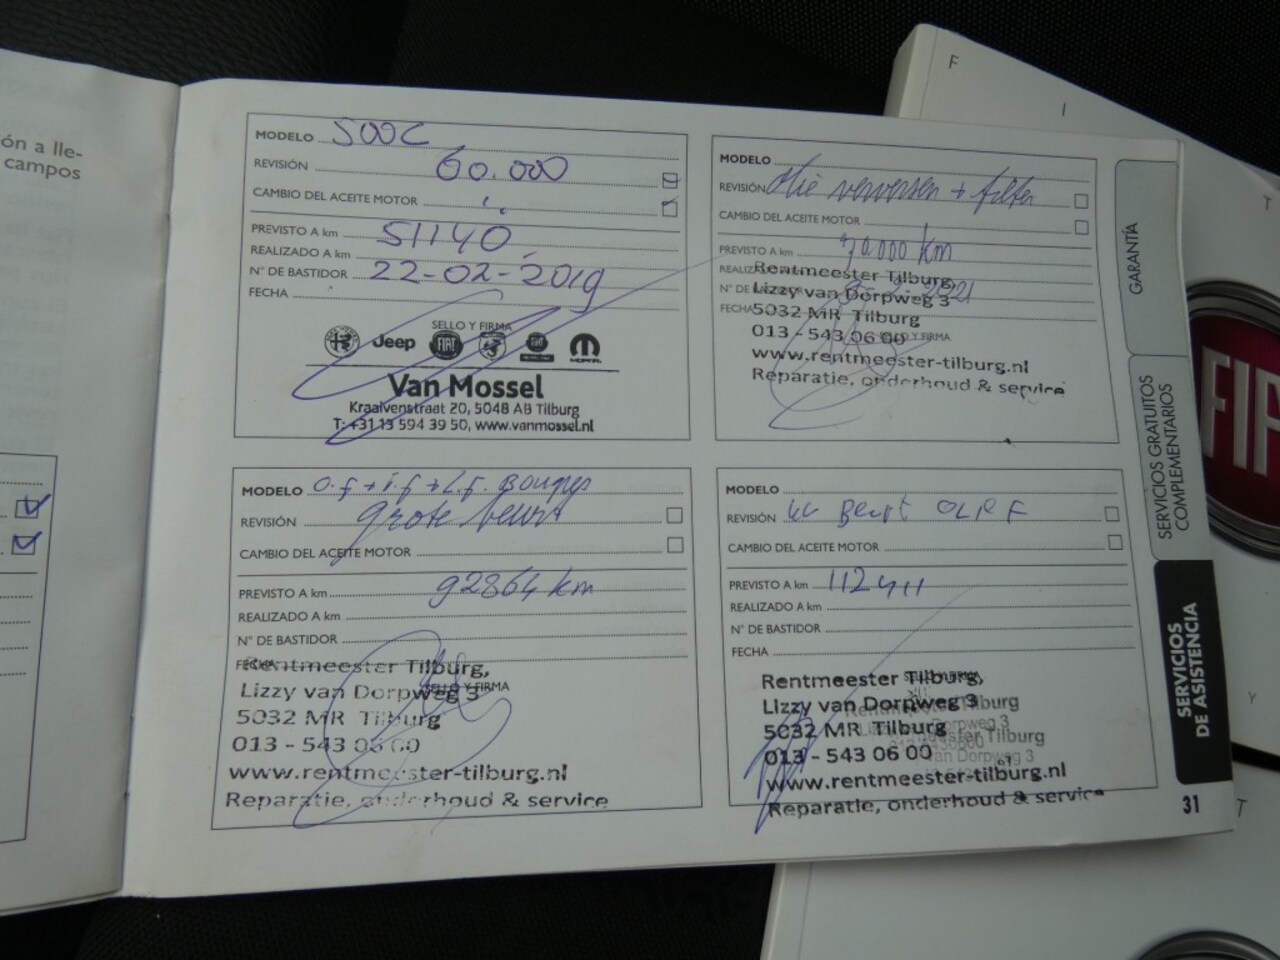 ón a lle-
campos
MODELO 500C
REVISIÓN 60.000
CAMBIO DEL ACEITE MOTOR
PREVISTO A km 51140
REALIZADO A km
N° DE BASTIDOR 22-02-2019
FECHA
SELLO Y FIRMA
Jeep FIAT
Van Mossel
Kraaivenstraat 20, 5048 AB Tilburg
T: +31 13 594 39 50, www.vanmossel.nl
MODELO
REVISIÓN Olie verversen + filter
CAMBIO DEL ACEITE MOTOR
PREVISTO A km 70.000 km
Rentmeester Tilburg,
Lizzy van Dorpweg 3
5032 MR Tilburg
013 - 543 06 00
SELLO Y FIRMA
www.rentmeester-tilburg.nl
Reparatie, onderhoud & service
MODELO o.f + i.f + L.f. Bougies
REVISIÓN grote beurt
CAMBIO DEL ACEITE MOTOR
PREVISTO A km 92864 km
REALIZADO A km
N° DE BASTIDOR
FECHA
Rentmeester Tilburg,
Lizzy van Dorpweg 3
SELLO Y FIRMA
5032 MR Tilburg
013 - 543 06 00
www.rentmeester-tilburg.nl
Reparatie, onderhoud & service
MODELO
REVISIÓN Beurt
CAMBIO DEL ACEITE MOTOR
PREVISTO A km 112411
REALIZADO A km
N° DE BASTIDOR
FECHA
Rentmeester Tilburg,
Lizzy van Dorpweg 3
5032 MR Tilburg
013 - 543 06 00
www.rentmeester-tilburg.nl
Reparatie, onderhoud & service
GARANTÍA
SERVICIOS GRATUITOS
COMPLEMENTARIOS
SERVICIOS
DE ASISTENCIA
31
F
I
T
Y
T